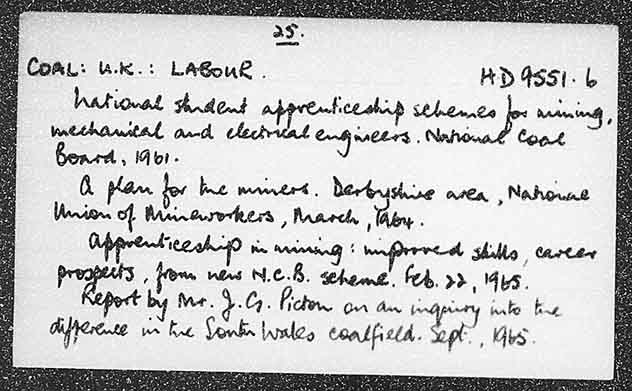 25.
COAL: U.K.: LABOUR. HD 9551.6
National student apprenticeship schemes for mining,
mechanical and electrical engineers. National Coal
Board, 1961.
A plan for the miners. Derbyshire area, National
Union of Mineworkers, March, 1964.
Apprenticeship in mining: improved skills, career
prospects, from new N.C.B. scheme. Feb. 22, 1965.
Report by Mr. J. G. Picton on an inquiry into the
difference in the South Wales coalfield. Sept., 1965.